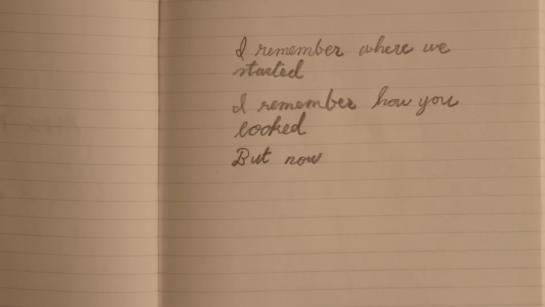 I remember where we
started
I remember how you
looked
But now